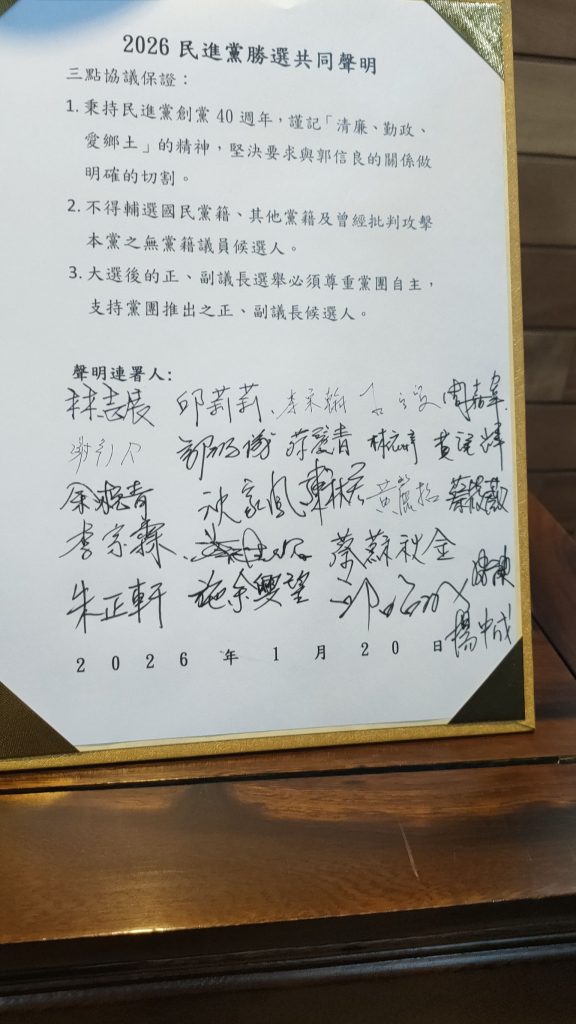 2026 民進黨勝選共同聲明
三點協議保證：
1. 秉持民進黨創黨 40 週年，謹記「清廉、勤政、
愛鄉土」的精神，堅決要求與郭信良的關係做
明確的切割。
2. 不得輔選國民黨籍、其他黨籍及曾經批判攻擊
本黨之無黨籍議員候選人。
3. 大選後的正、副議長選舉必須尊重黨團自主，
支持黨團推出之正、副議長候選人。
聲明連署人：
林志展 邱莉莉 李宗翰 周嘉韋
蔡筱薇
李宗霖 蔡蘇秋金
朱正軒 施余興望
楊中成
2026 年 1 月 20 日